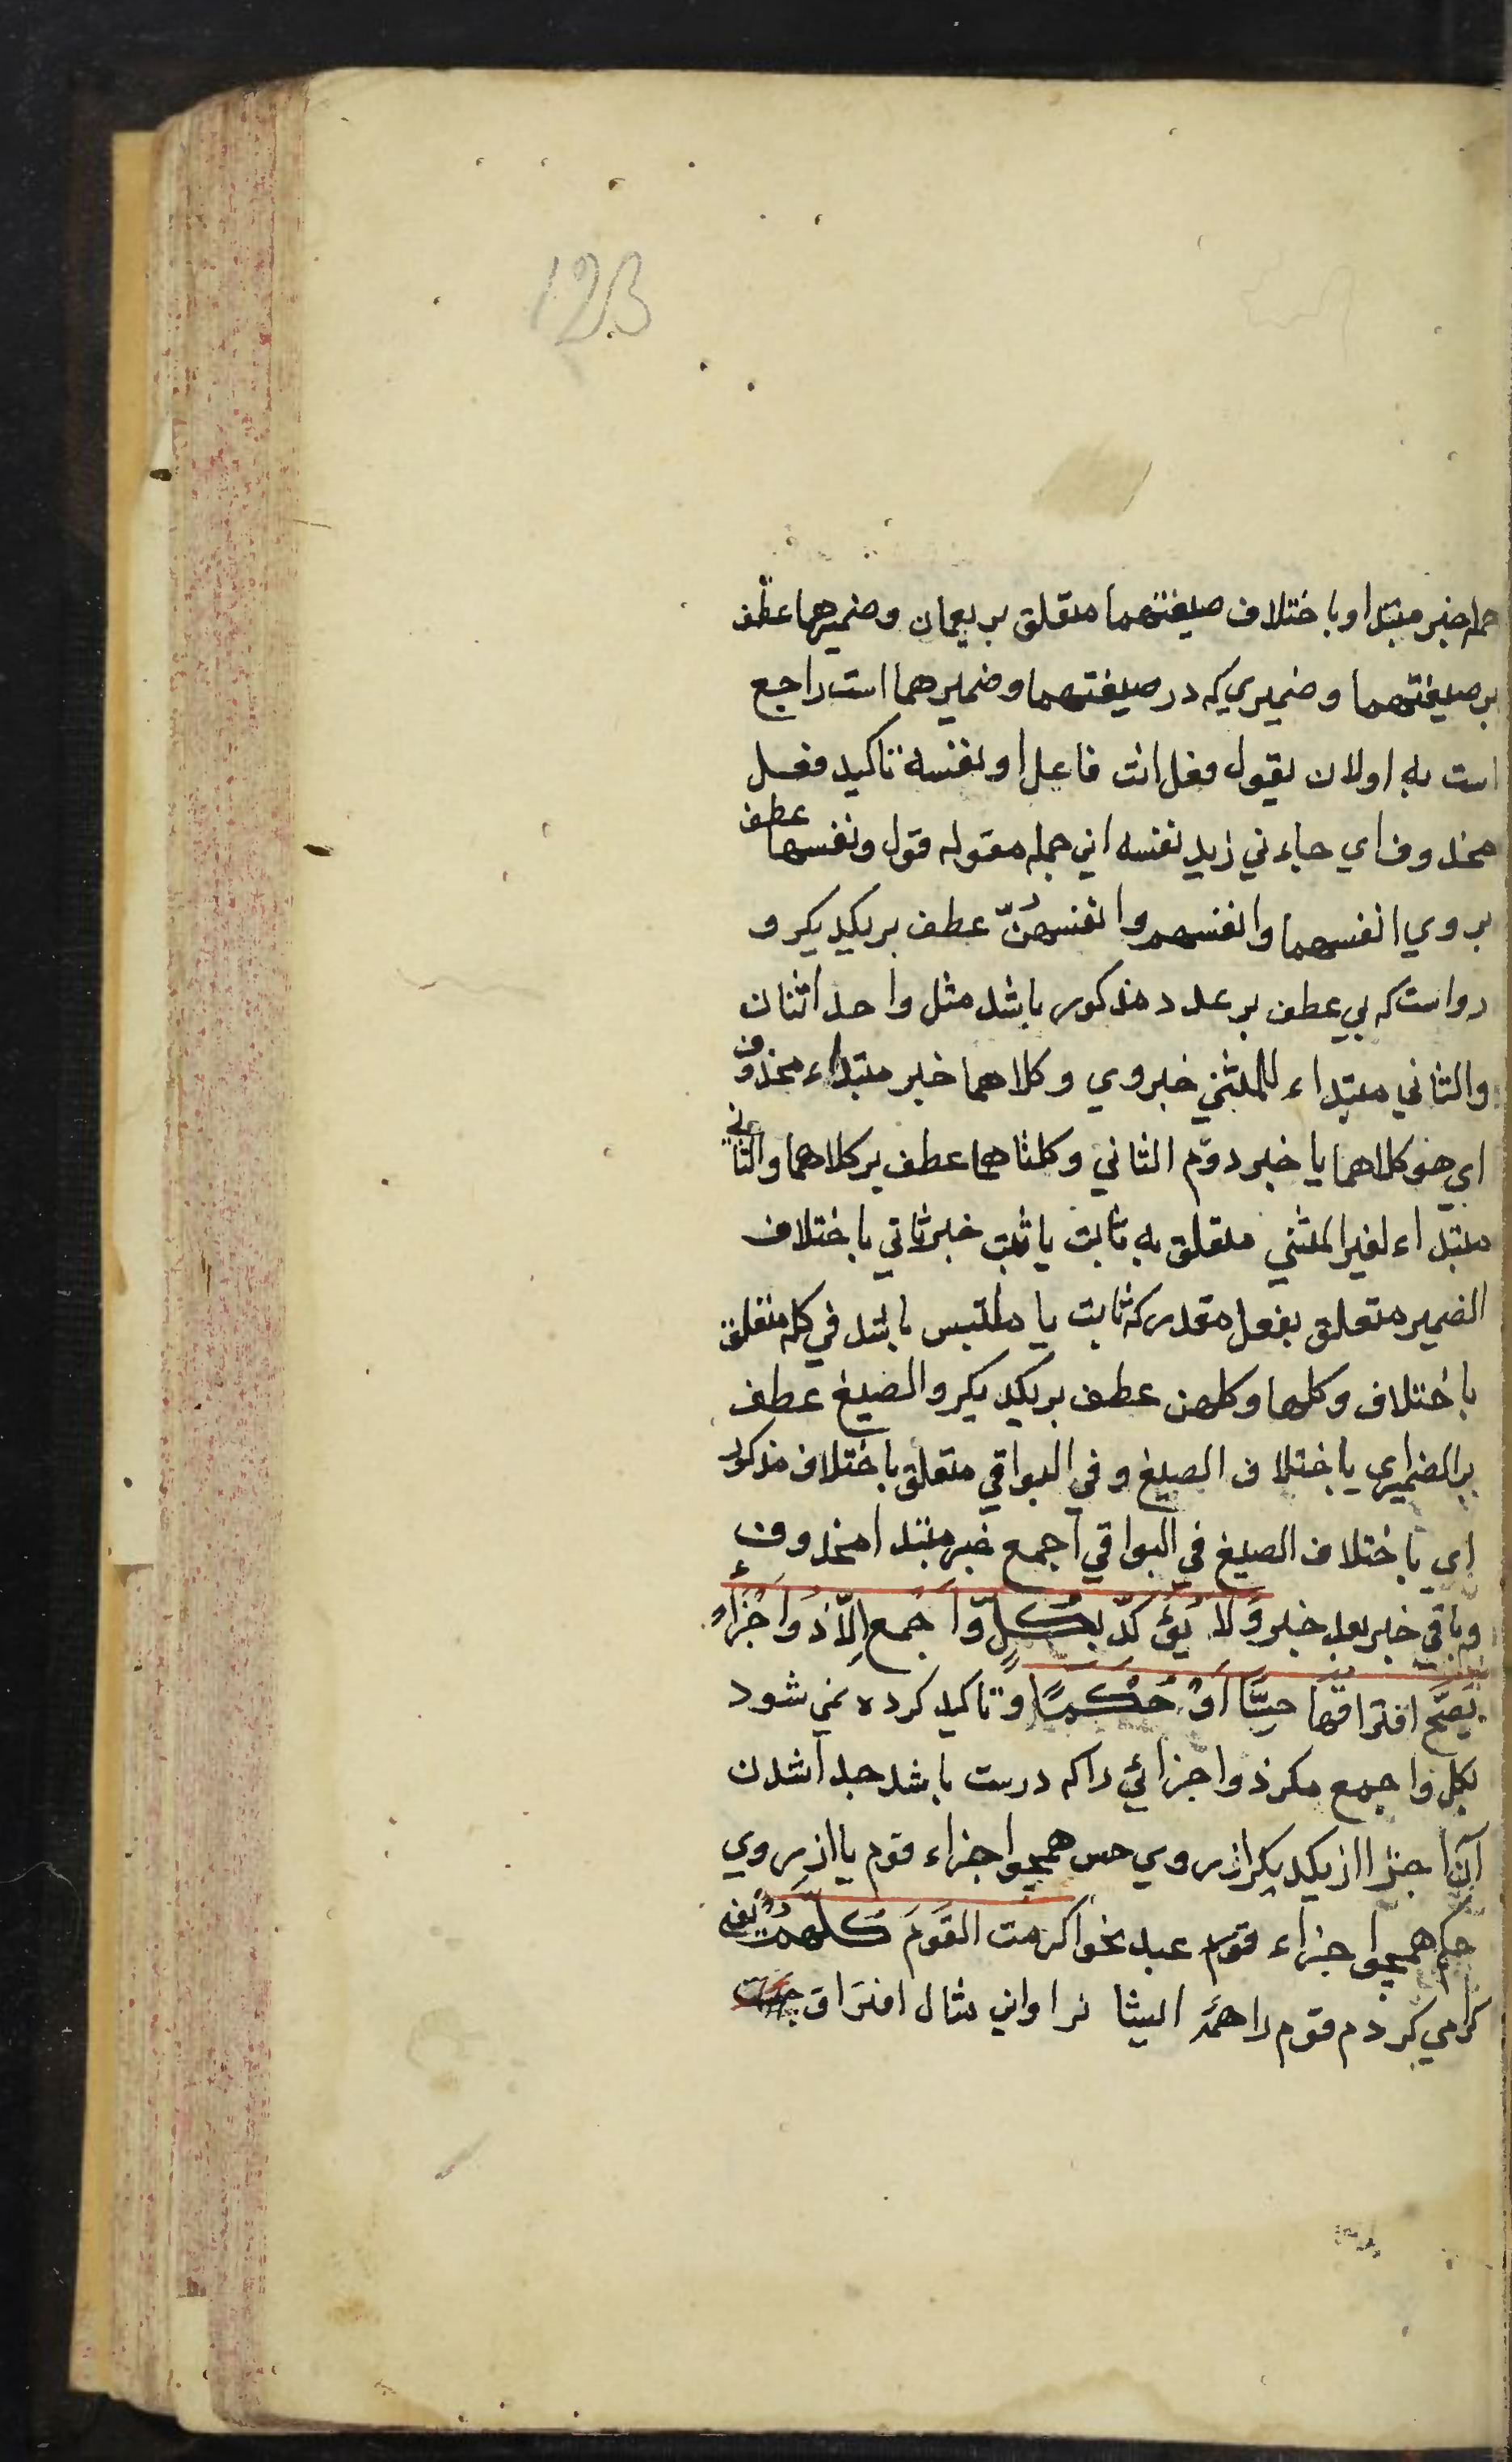 123
جمله خبر مبتدا و باختلاف صیغتهما متعلق بر یعمان و ضمیرهما عطف
بر صیغتهما و ضمیری که در صیغتهما و ضمیرهما است راجع
است به اولان یقول فعل انت فاعل او نفسه تاکید فعل
محذوف ای جاءني زید نفسه این جمله مقوله قول و نفسها عطف
بر وی انفسهما و انفسهم و انفسهنّ عطف بر یکدیگر و
رواست که بی عطف بر عدد مذکور باشد مثل واحد اثنان
والثاني مبتداء للمثنی خبر وی و کلاهما خبر مبتداء محذوف
ای هو کلاهما یا خبر دوّم الثاني و کلتاهما عطف بر کلاهما والثاني
مبتداء لغیر المثنی متعلق به ثابت یا ثبت خبر ثاني باختلاف
الضمیر متعلق بفعل مقدر که ثابت یا ملتبس باشد في کله متعلق
باختلاف و کلها و کلهن عطف بر یکدیگر و الصیغ عطف
بر الضمیر ای باختلاف الصیغ و في البواقي متعلق باختلاف مذکور
ای باختلاف الصیغ في البواقي اجمع خبر مبتدا محذوف
و باقي خبر بعد خبر وَلَا یُؤَکَّدُ بِکُلٍّ وَ اَجْمَع اِلّا ذُو اَجْزَاءٍ
یَصِحّ افتراقُها حِسًّا اَوْ حُکْمًا و تاکید کرده نمی شود
بکل و اجمع مکر ذو اجزائي را که درست باشد جدا شدن
آن اجزا از یکدیگر از روی حس همچو اجزاء قوم یا از روی
حکم همچو اجزاء عبد نحو اکرمت القَوْمَ کُلَّهُمْ یعنی
کرامي کردم قوم را همه ایشا نرا و این مثال افتراق